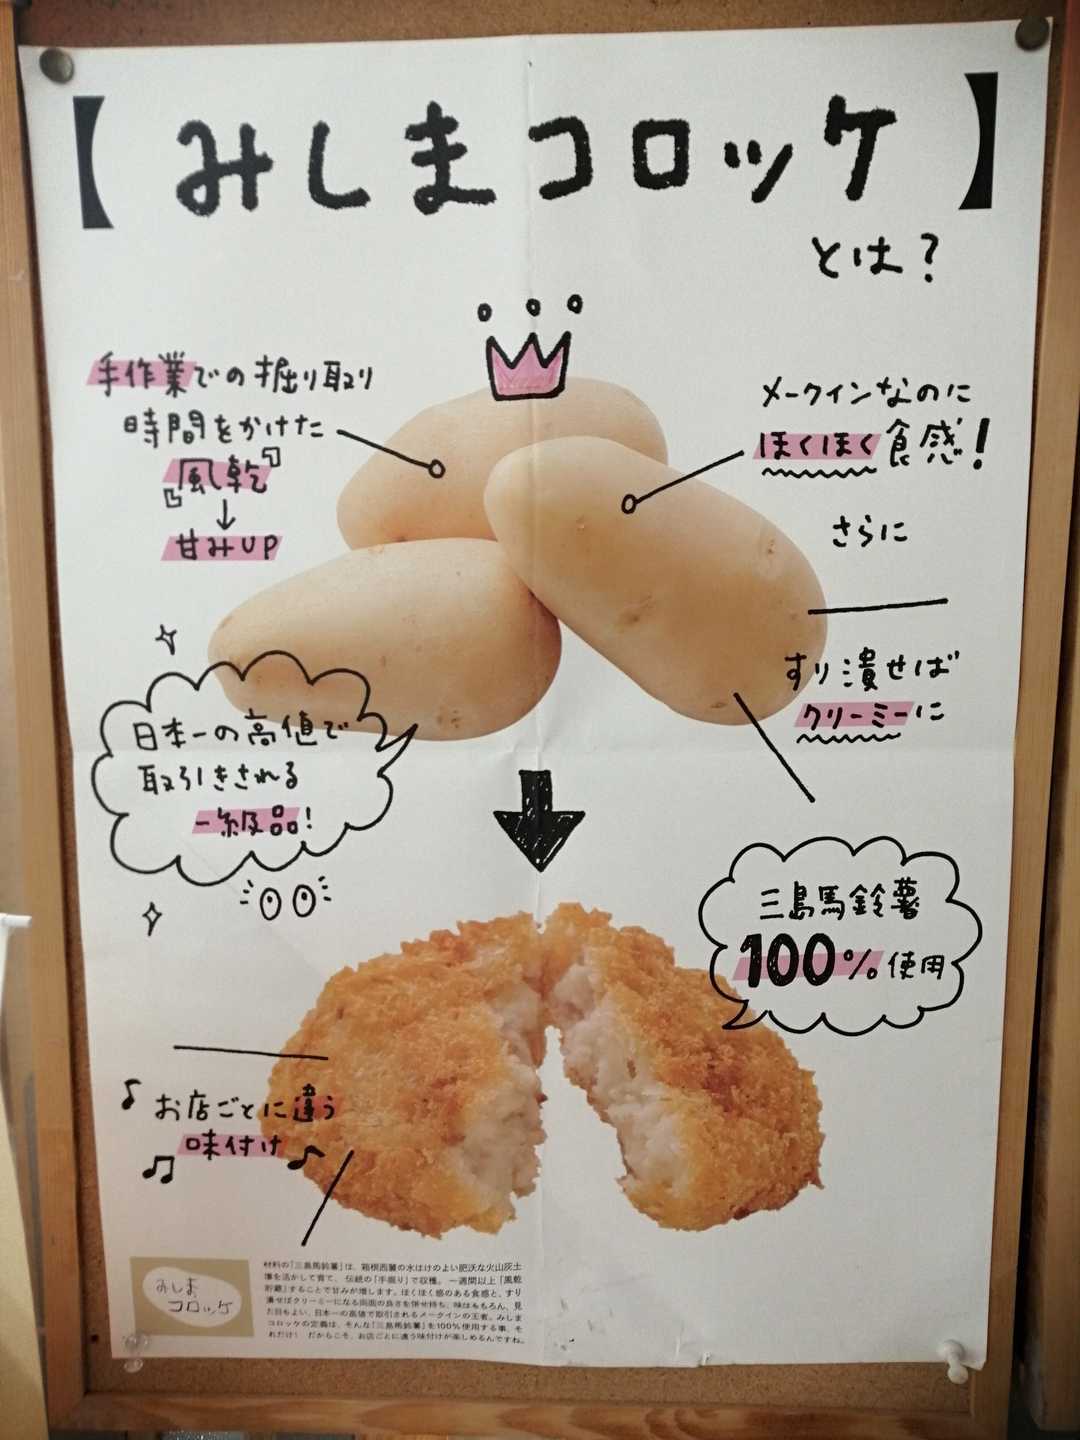 【みしまコロッケ】
とは？
手作業での掘り取り
時間をかけた
『風乾』
↓
甘みUP
メークインなのに
ほくほく食感！
さらに
すり潰せば
クリーミーに
日本一の高値で
取引きされる
一級品！
三島馬鈴薯
100%使用
お店ごとに違う
味付け
みしま
コロッケ
材料の「三島馬鈴薯」は、箱根西麓の水はけのよい肥沃な火山灰土
壌を活かして育て、伝統の「手掘り」で収穫。一週間以上「風乾
貯蔵」することで甘みが増します。ほくほく感のある食感と、すり
潰せばクリーミーになる両面の良さを併せ持ち、味はもちろん、見
た目もよい、日本一の高値で取引されるメークインの王者。みしま
コロッケの定義は、そんな「三島馬鈴薯」を100%使用する事、そ
れだけ！ だからこそ、お店ごとに違う味付けが楽しめるんですね。